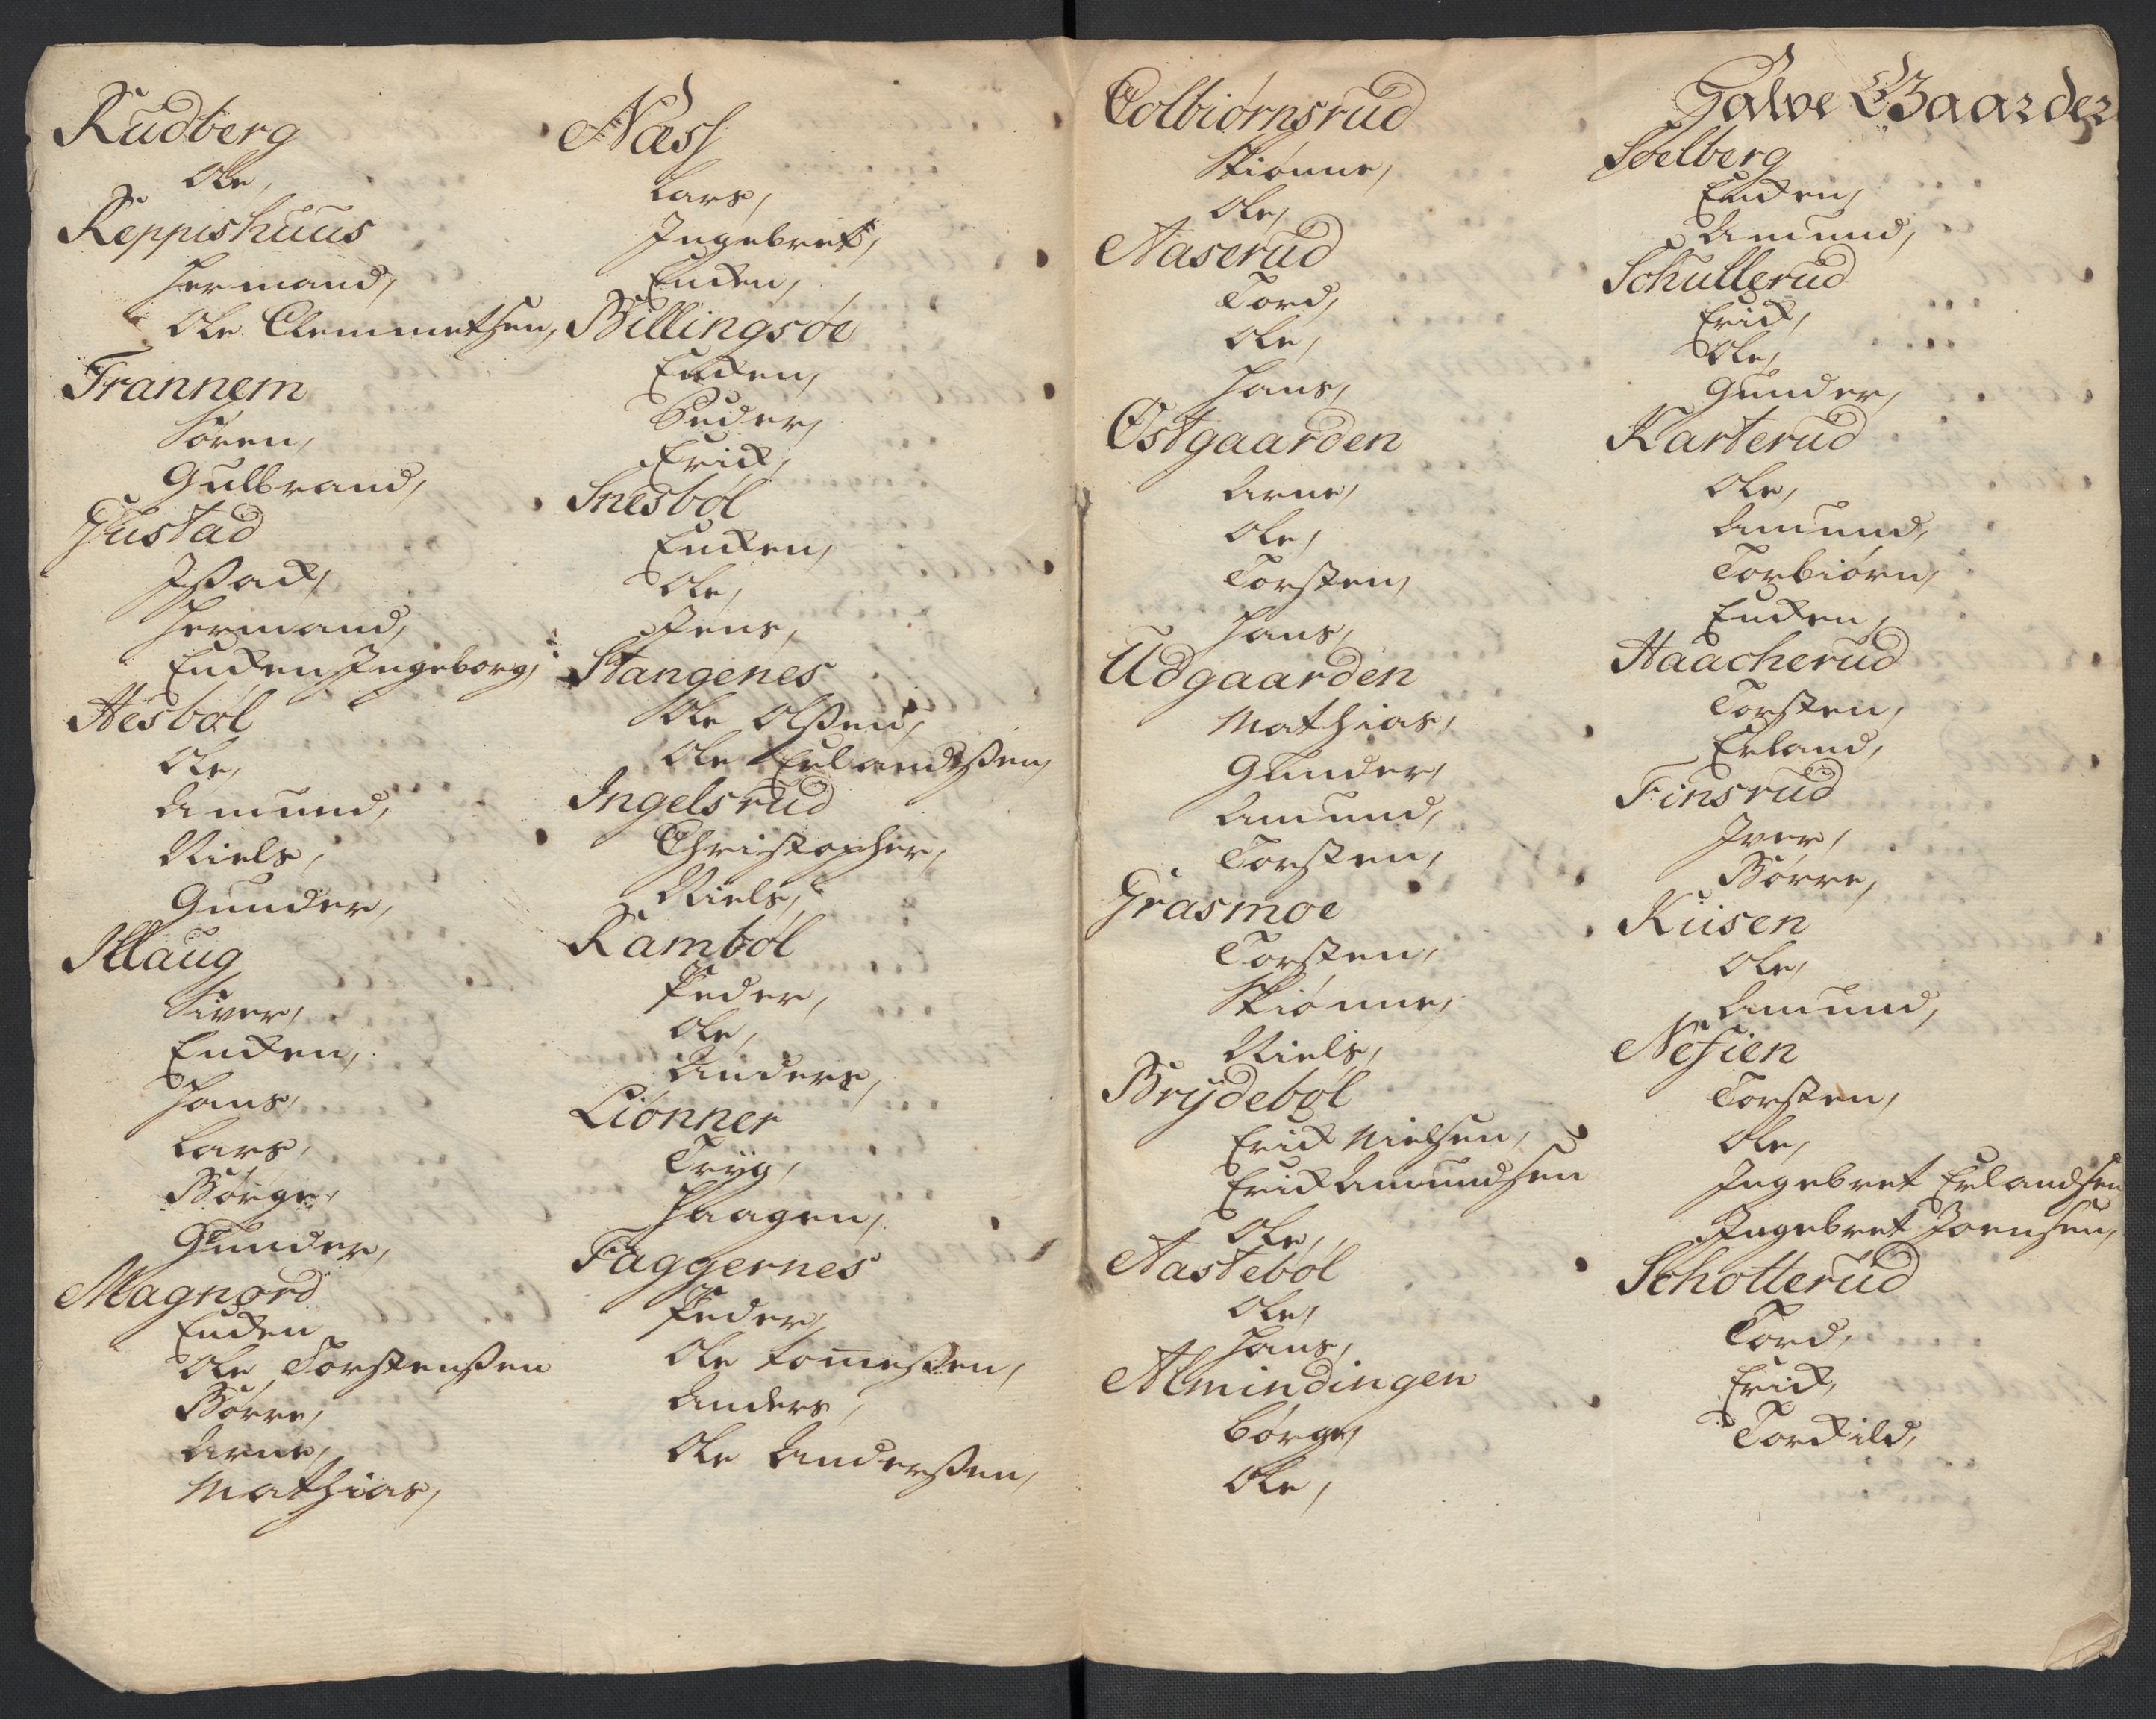 Rudberg
Ole,
Keppishuus
Hermand,
Ole Clemmethsen,
Frannem
Sören,
Gulbrand,
Gustad
Jsßack,
Hermand,
Encken Jngeborg,
Hesböl
Ole,
Amund,
Niels,
Gunder,
Maug
Siver,
Encken,
Hans,
Lars,
Börge,
Gunder,
Magnord
Encken
Ole Torstenßen
Börre,
Arne,
Mathias,
Næss
Lars,
Jngebret,
Encken,
Billingsöe
Encken,
Peder,
Erick,
Snesböl
Encken,
Ole,
Jens,
Stangenes
Ole Olßen,
Ole Erlandßen,
Ingelsrud
Christopher,
Niels,
Ramböl
Peder,
Ole,
Anders,
Liönner
Tryg,
Haagen,
Faggernes
Peder,
Ole Tomeßen,
Anders,
Ole Anderßen,
Colbiörnsrud
Skiönne,
Ole,
Aaserud
Tord,
Ole,
Hans,
Östgaarden
Arne,
Ole,
Torsten,
Hans,
Udgaarden
Mathias,
Gunder,
Amund,
Torsten,
Grasmoe
Torsten,
Skiönne,
Niels,
Brÿdeböl
Erick Nielsen,
Erick Amundsen
Ole,
Aasteböl
Ole,
Hans,
Almindingen
Börge,
Ole,
Halve Gaarder
Soelberg
Encken,
Amund,
Schullerud
Erick,
Ole,
Gunder,
Karterud
Ole,
Amund,
Torbiörn,
Encken,
Haacherud
Torsten,
Erland,
Finsrud
Iver,
Börre,
Kiisen
Ole,
Amund,
Nesien
Torsten,
Ole,
Jngebret Erlandsen
Jngebret Joensen,
Schotterud
Tord,
Erick,
Torckild,